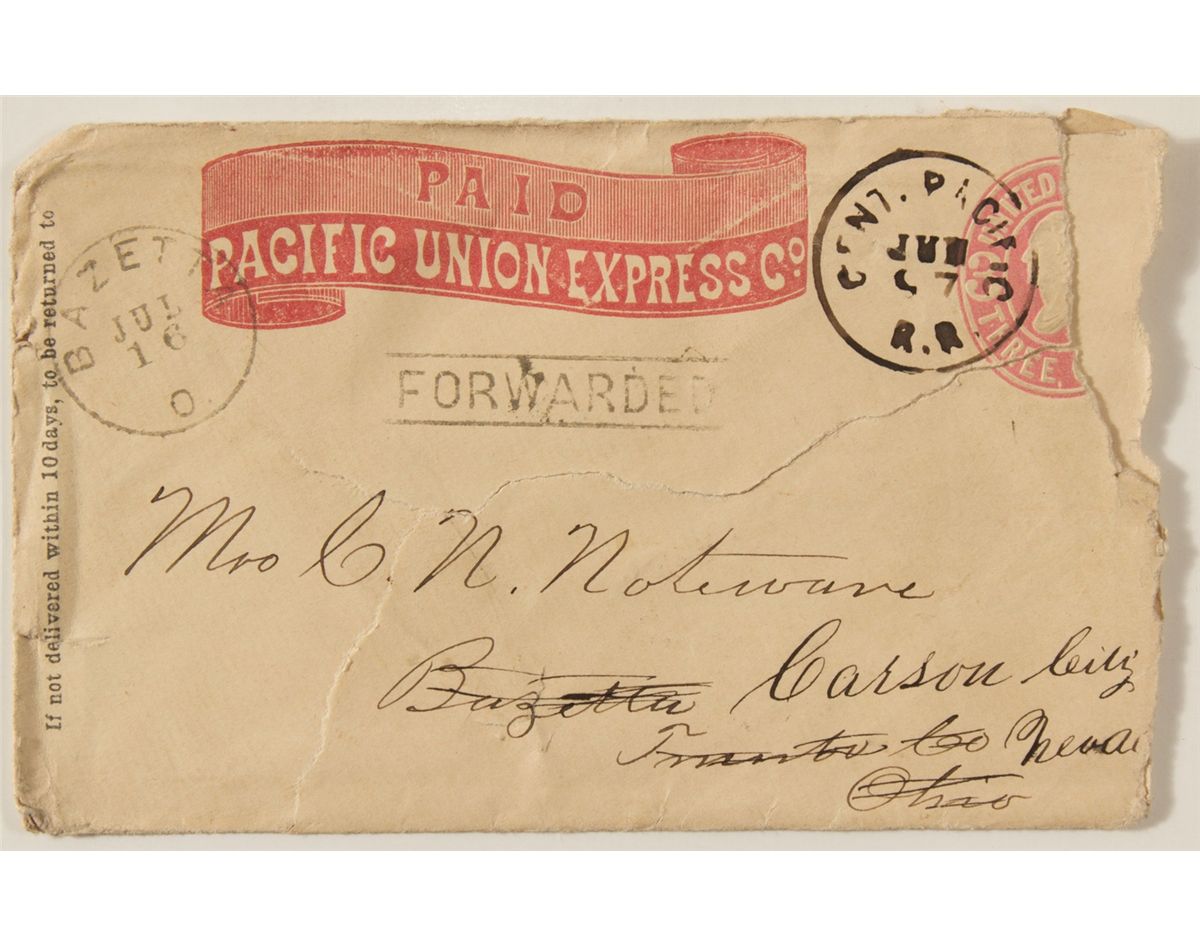 PAID
PACIFIC UNION EXPRESS Co
CENT. PACIFIC
R.R.
THREE
BAZETTA
JUL
16
O.
FORWARDED
If not delivered within 10 days, to be returned to
Mrs C. N. Noteware
Bazetta Carson City
Co Neva
Ohio